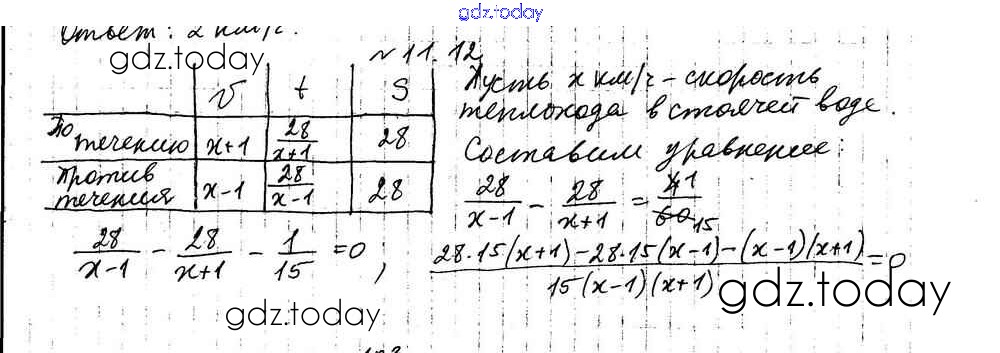 gdz.today
Ответ: 2 км/с.
gdz.today
№11.12
v t S
По течению x+1 28/(x+1) 28
Против течения x-1 28/(x-1) 28
Пусть x км/ч - скорость
теплохода в стоячей воде.
Составим уравнение:
28/(x-1) - 28/(x+1) = 41/60 15
28/(x-1) - 28/(x+1) - 1/15 = 0;
(28·15(x+1)-28·15(x-1)-(x-1)(x+1))/(15(x-1)(x+1)) = 0
gdz.today
gdz.today